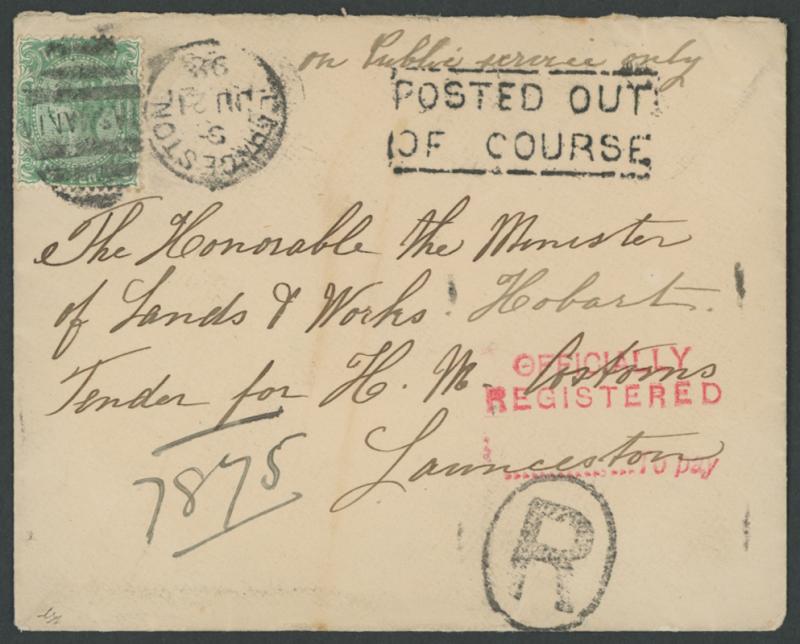 on Public service only
LAUNCESTON
JU 21
98
POSTED OUT
OF COURSE
The Honorable the Minister
of Lands & Works. Hobart.
Tender for H. M. Costoms
Launceston
OFFICIALLY
REGISTERED
To pay
7875
R